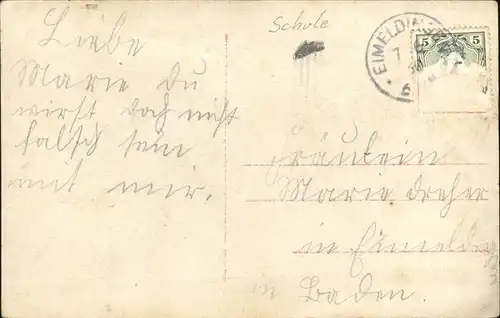 Schule
Liebe
Marie du
wirst doch nicht
falsch sein
mit mir.
EIMELDINGEN
5 5
Fräulein
Marie Dreher
in Eimeldin
in Baden.